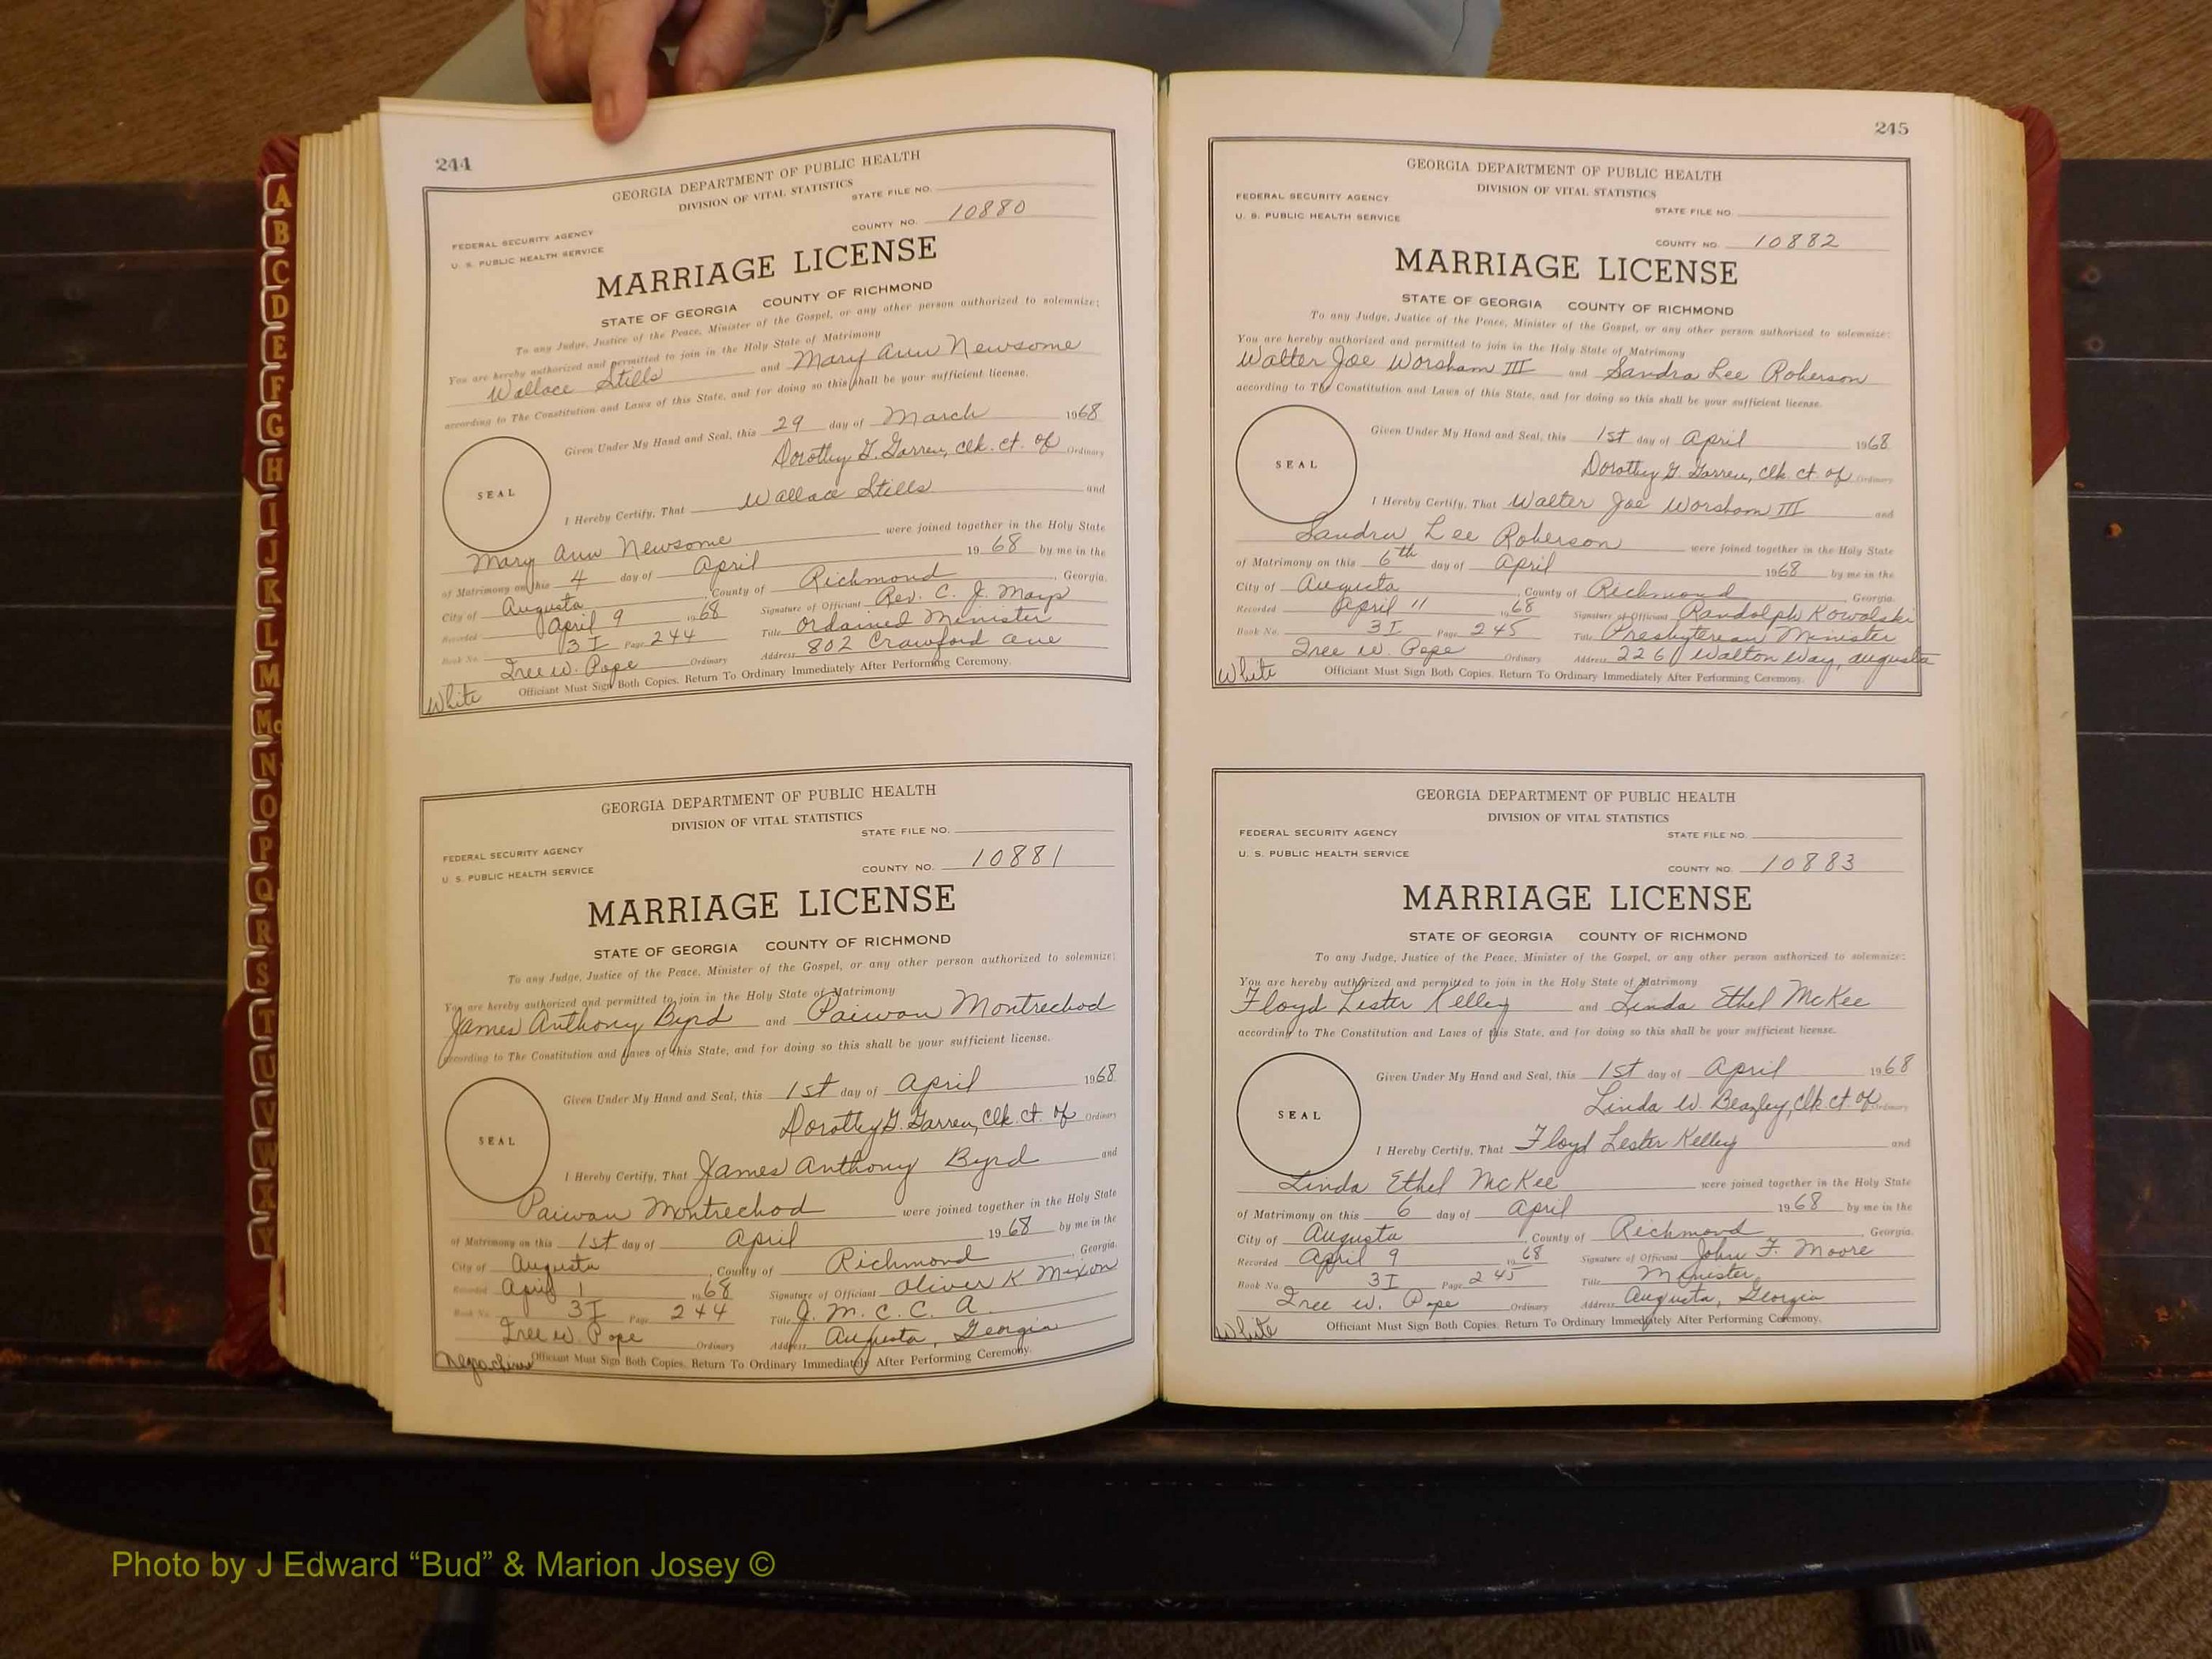 244
GEORGIA DEPARTMENT OF PUBLIC HEALTH
DIVISION OF VITAL STATISTICS
STATE FILE NO.
COUNTY NO. 10880
FEDERAL SECURITY AGENCY
U. S. PUBLIC HEALTH SERVICE
MARRIAGE LICENSE
STATE OF GEORGIA COUNTY OF RICHMOND
To any Judge, Justice of the Peace, Minister of the Gospel, or any other person authorized to solemnize:
You are hereby authorized and permitted to join in the Holy State of Matrimony
Wallace Stills and Mary Ann Newsome
according to The Constitution and Laws of this State, and for doing so this shall be your sufficient license.
Given Under My Hand and Seal, this 29 day of March 1968
Dorothy G. Garren, Clk. Ct. of Ordinary
SEAL
I Hereby Certify, That Wallace Stills and
Mary Ann Newsome were joined together in the Holy State
of Matrimony on this 4 day of April 1968 by me in the
City of Augusta, County of Richmond, Georgia.
Recorded April 9 1968 Signature of Officiant Rev. C. J. Mays
Book No. 3I Page 244 Title Ordained Minister
Iree W. Pope Ordinary Address 802 Crawford Ave
Officiant Must Sign Both Copies. Return To Ordinary Immediately After Performing Ceremony.
White
GEORGIA DEPARTMENT OF PUBLIC HEALTH
DIVISION OF VITAL STATISTICS
STATE FILE NO.
FEDERAL SECURITY AGENCY
U. S. PUBLIC HEALTH SERVICE
COUNTY NO. 10881
MARRIAGE LICENSE
STATE OF GEORGIA COUNTY OF RICHMOND
To any Judge, Justice of the Peace, Minister of the Gospel, or any other person authorized to solemnize:
You are hereby authorized and permitted to join in the Holy State of Matrimony
James Anthony Byrd and Paiwan Montrechod
according to The Constitution and Laws of this State, and for doing so this shall be your sufficient license.
Given Under My Hand and Seal, this 1st day of April 1968
Dorothy G. Garren, Clk. Ct. of Ordinary
SEAL
I Hereby Certify, That James Anthony Byrd and
Paiwan Montrechod were joined together in the Holy State
of Matrimony on this 1st day of April 1968 by me in the
City of Augusta, County of Richmond, Georgia.
Recorded April 1 1968 Signature of Officiant Oliver K Mixon
Book No. 3I Page 244 Title J. M. C. C. A.
Iree W. Pope Ordinary Address Augusta, Georgia
Officiant Must Sign Both Copies. Return To Ordinary Immediately After Performing Ceremony.
245
GEORGIA DEPARTMENT OF PUBLIC HEALTH
DIVISION OF VITAL STATISTICS
FEDERAL SECURITY AGENCY
U. S. PUBLIC HEALTH SERVICE
STATE FILE NO.
COUNTY NO. 10882
MARRIAGE LICENSE
STATE OF GEORGIA COUNTY OF RICHMOND
To any Judge, Justice of the Peace, Minister of the Gospel, or any other person authorized to solemnize:
You are hereby authorized and permitted to join in the Holy State of Matrimony
Walter Joe Worsham III and Sandra Lee Roberson
according to The Constitution and Laws of this State, and for doing so this shall be your sufficient license.
Given Under My Hand and Seal, this 1st day of April 1968
Dorothy G. Garren, Clk. Ct. of Ordinary
SEAL
I Hereby Certify, That Walter Joe Worsham III and
Sandra Lee Roberson were joined together in the Holy State
of Matrimony on this 6th day of April 1968 by me in the
City of Augusta, County of Richmond, Georgia.
Recorded April 11 1968 Signature of Officiant Randolph Kowalski
Book No. 3I Page 245 Title Presbyterean Minister
Iree W. Pope Ordinary Address 2261 Walton Way, Augusta
White
Officiant Must Sign Both Copies. Return To Ordinary Immediately After Performing Ceremony.
GEORGIA DEPARTMENT OF PUBLIC HEALTH
DIVISION OF VITAL STATISTICS
FEDERAL SECURITY AGENCY
U. S. PUBLIC HEALTH SERVICE
STATE FILE NO.
COUNTY NO. 10883
MARRIAGE LICENSE
STATE OF GEORGIA COUNTY OF RICHMOND
To any Judge, Justice of the Peace, Minister of the Gospel, or any other person authorized to solemnize:
You are hereby authorized and permitted to join in the Holy State of Matrimony
Floyd Lester Kelley and Linda Ethel McKee
according to The Constitution and Laws of this State, and for doing so this shall be your sufficient license.
Given Under My Hand and Seal, this 1st day of April 1968
Linda W. Beazley, Clk Ct of Ordinary
SEAL
I Hereby Certify, That Floyd Lester Kelley and
Linda Ethel McKee were joined together in the Holy State
of Matrimony on this 6 day of April 1968 by me in the
City of Augusta, County of Richmond, Georgia.
Recorded April 9 1968 Signature of Officiant John F. Moore
Book No. 3I Page 245 Title Minister
Iree W. Pope Ordinary Address Augusta, Georgia
White
Officiant Must Sign Both Copies. Return To Ordinary Immediately After Performing Ceremony.
A
B
C
D
E
F
G
H
I
J
K
L
M
Mc
N
O
P
Q
R
S
T
U
V
W
X
Y
Photo by J Edward “Bud” & Marion Josey ©